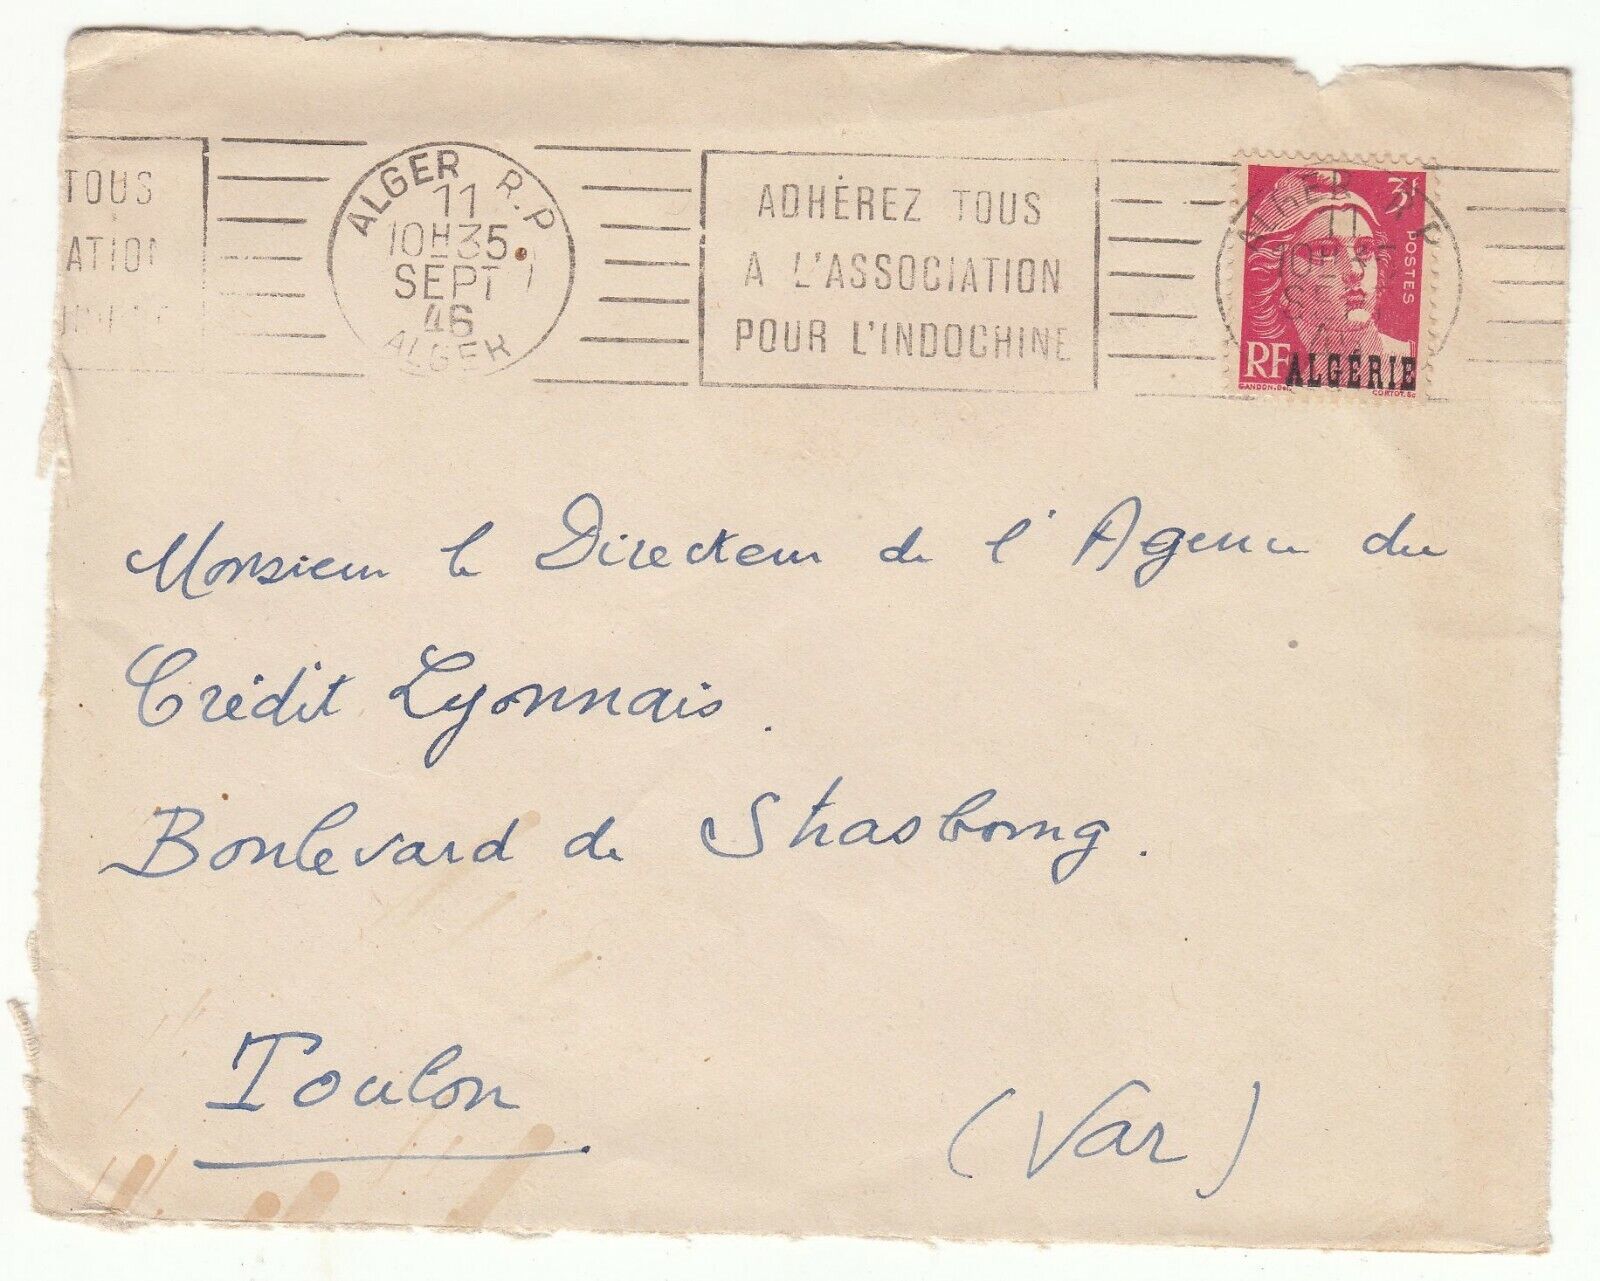 TOUS
ATION
ALGER R.P
11
10H35
SEPT
46
ALGER
ADHÉREZ TOUS
A L'ASSOCIATION
POUR L'INDOCHINE
ALGER
11
3f
POSTES
RF
ALGÉRIE
GANDON.Del.
CORTOT.Sc
Monsieur le Directeur de l'Agence du
Crédit Lyonnais.
Boulevard de Strasbourg.
Toulon
(Var)